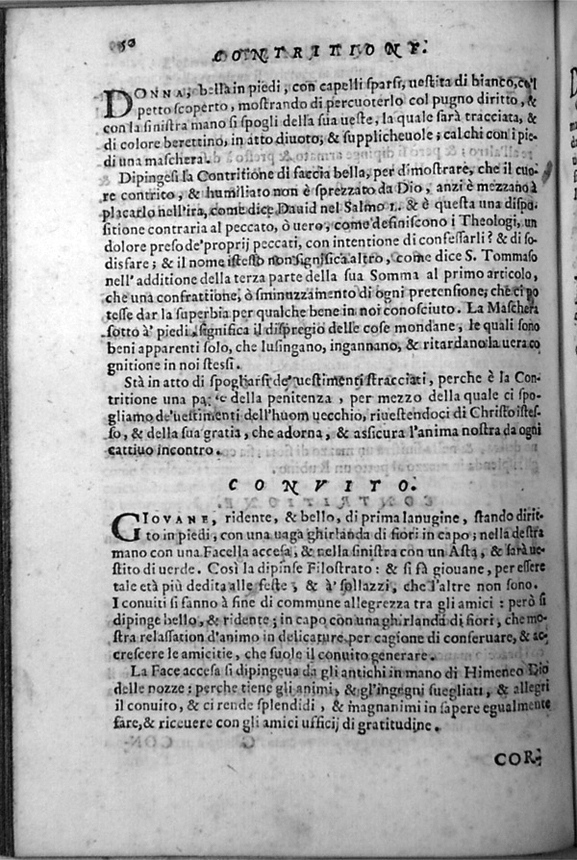 50
CONTRITIONE.
DONNA, bella in piedi, con capelli sparsi, uestita di bianco, co'l
petto scoperto, mostrando di percuoterlo col pugno diritto, &
con la sinistra mano si spogli della sua ueste, la quale sarà tracciata, &
di colore berettino, in atto diuoto, & supplicheuole; calchi con i pie-
di una maschera.
Dipingesi la Contritione di faccia bella, per dimostrare, che il cuo-
re contrito, & humiliato non è sprezzato da Dio, anzi è mezzano à
placarlo nell'ira, come dice Dauid nel Salmo 1. & è questa una dispo-
sitione contraria al peccato, ò uero, come definiscono i Theologi, un
dolore preso de' proprij peccati, con intentione di confessarli? & di so-
disfare; & il nome istesso non significa altro, come dice S. Tommaso
nell'additione della terza parte della sua Somma al primo articolo,
che una confrattione, ò sminuzzamento di ogni pretensione, che ci po
tesse dar la superbia per qualche bene in noi conosciuto. La Maschera
sotto à' piedi, significa il dispregio delle cose mondane, le quali sono
beni apparenti solo, che lusingano, ingannano, & ritardano la uera co
gnitione in noi stessi.
Stà in atto di spogliarsi de' uestimenti stracciati, perche è la Con-
tritione una parte della penitenza, per mezzo della quale ci spo-
gliamo de' uestimenti dell'huom uecchio, riuestendoci di Christo istes-
so, & della sua gratia, che adorna, & assicura l'anima nostra da ogni
cattiuo incontro.
CONVITO.
GIOVANE, ridente, & bello, di prima lanugine, stando dirit-
to in piedi, con una uaga ghirlanda di fiori in capo; nella destra
mano con una Facella accesa, & nella sinistra con un Asta, & sarà ue-
stito di uerde. Così la dipinse Filostrato: & si fà giouane, per essere
tale età più dedita alle feste, & à' sollazzi, che l'altre non sono.
I conuiti si fanno à fine di commune allegrezza tra gli amici: però si
dipinge bello, & ridente; in capo con una ghirlanda di fiori, che mo-
stra relassation d'animo in delicature, per cagione di conseruare, & ac-
crescere le amicitie, che suole il conuito generare.
La Face accesa si dipingeua da gli antichi in mano di Himeneo Dio
delle nozze: perche tiene gli animi, & gl'ingegni suegliati, & allegri
il conuito, & ci rende splendidi, & magnanimi in sapere egualmente
fare, & riceuere con gli amici ufficij di gratitudine.
COR-